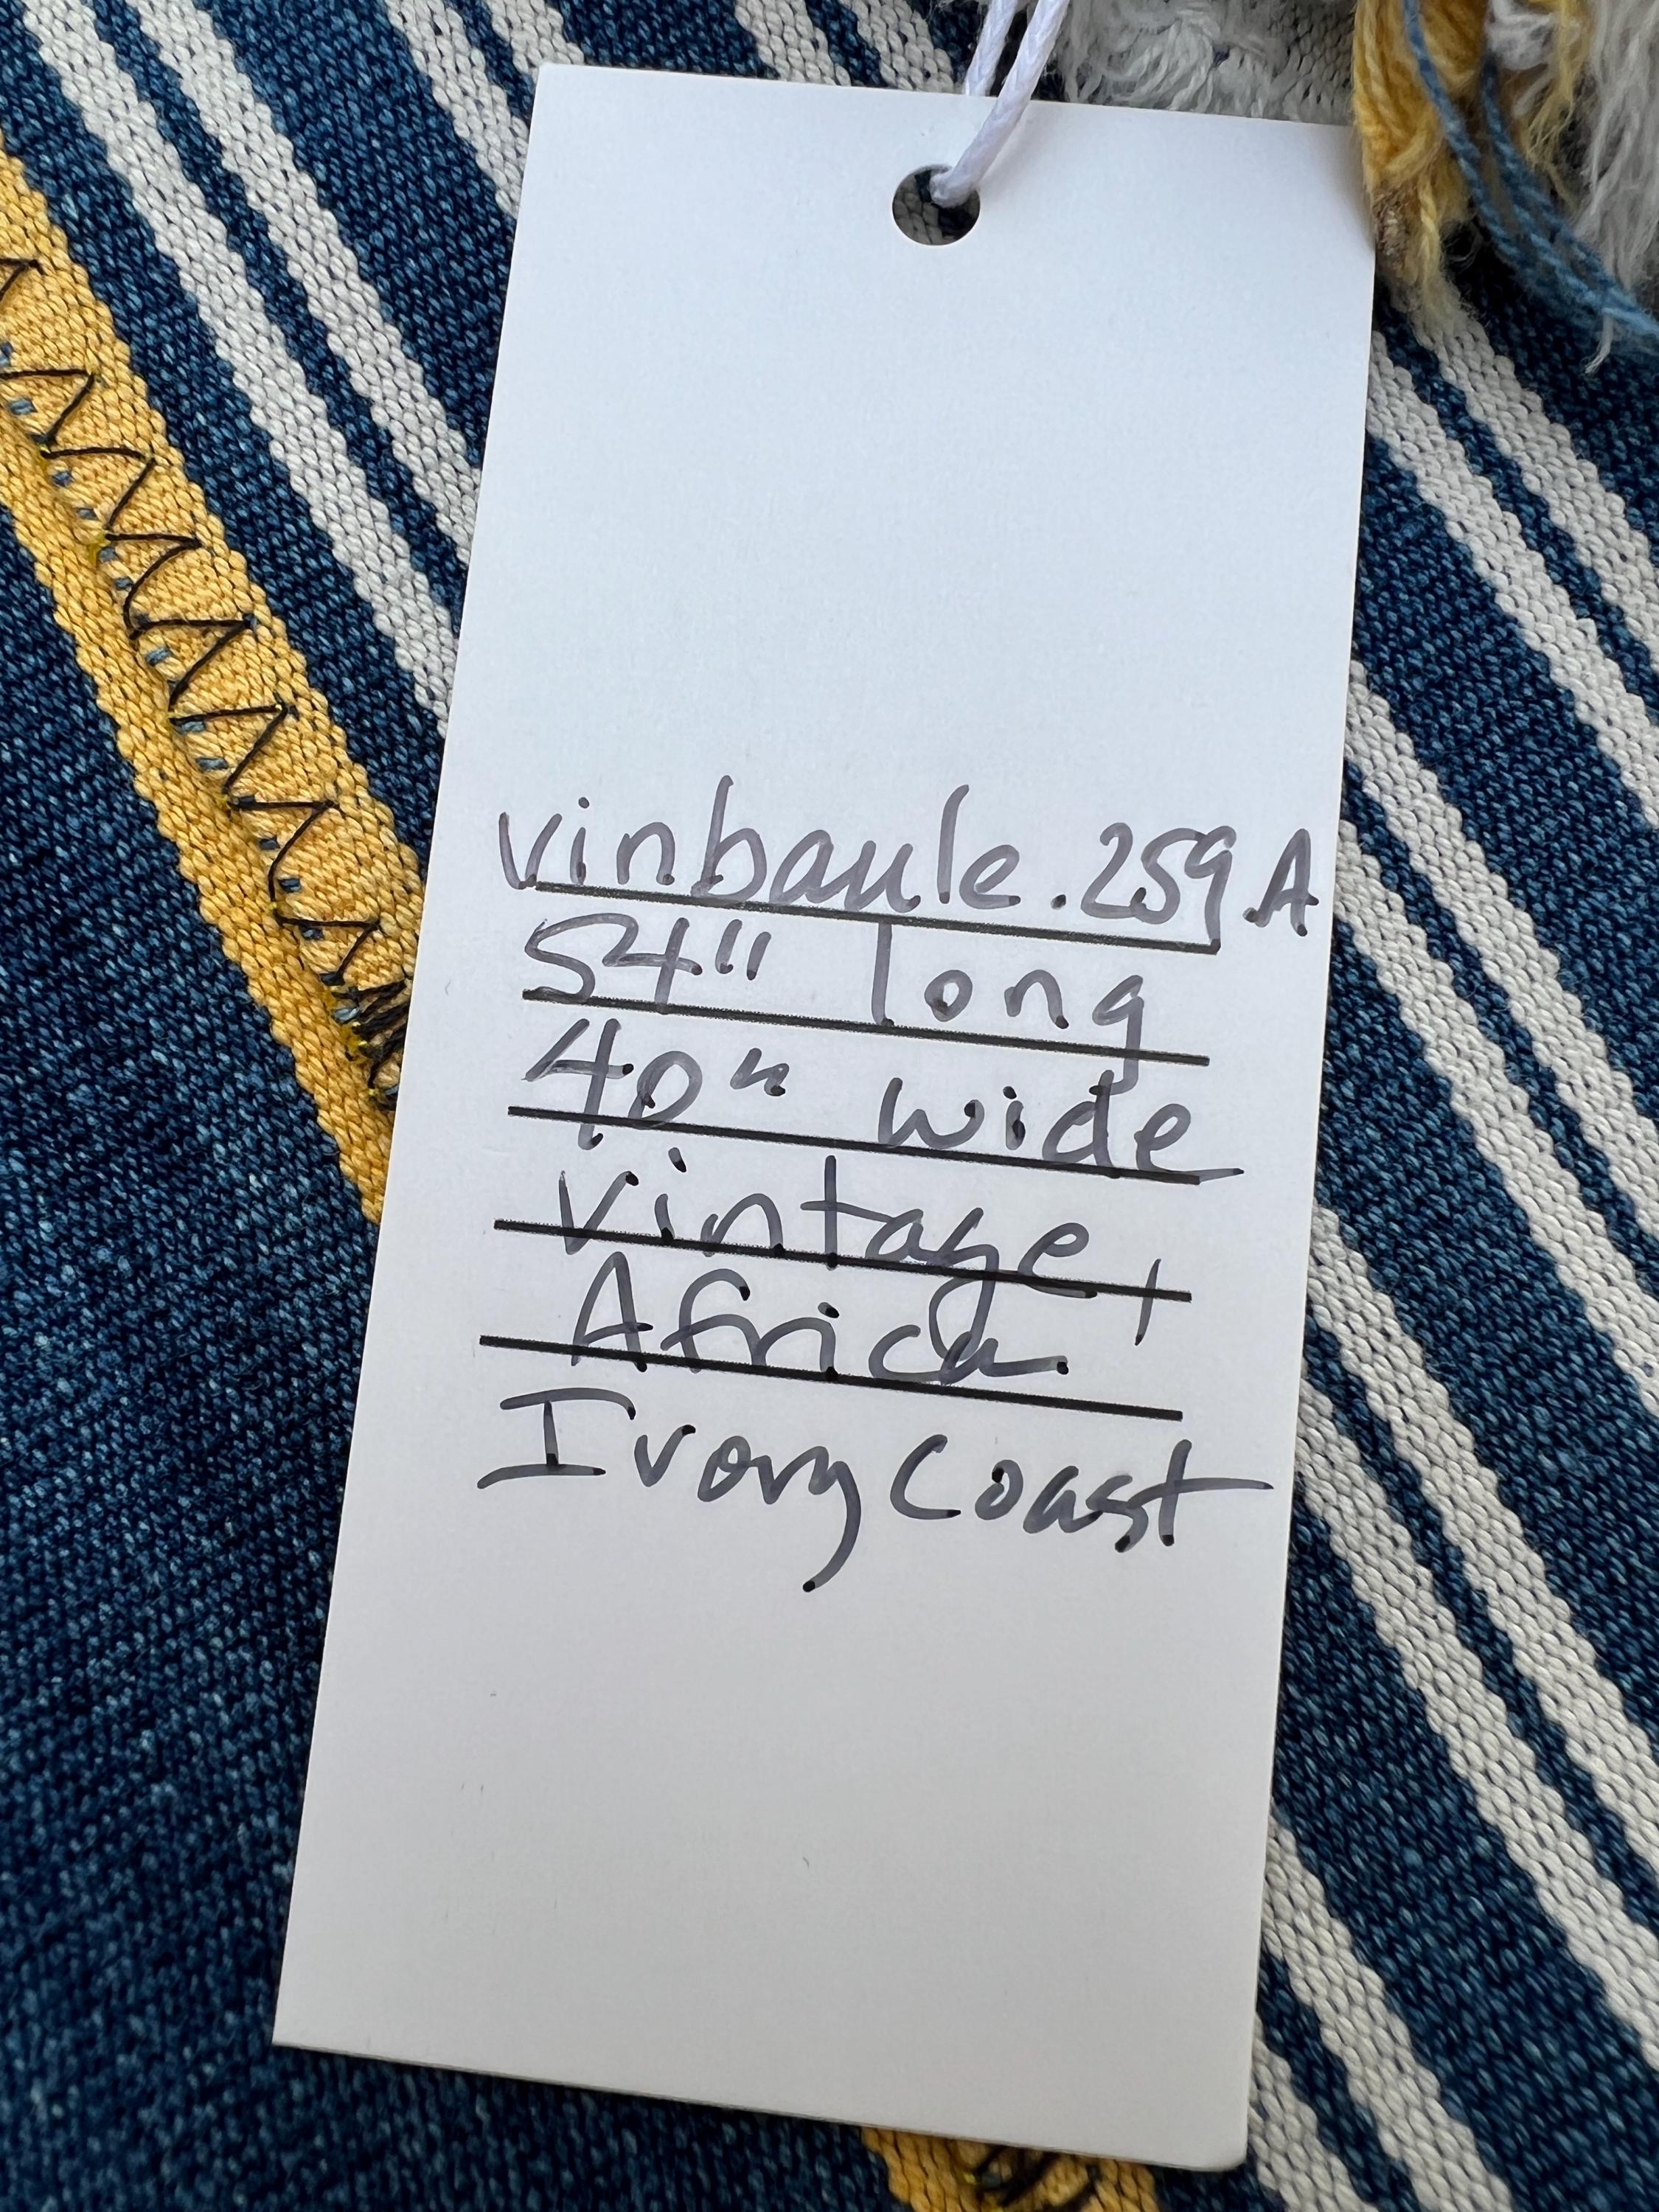 vinbaule.259.A
54" long
40" wide
Vintage,
Africa.
Ivory Coast